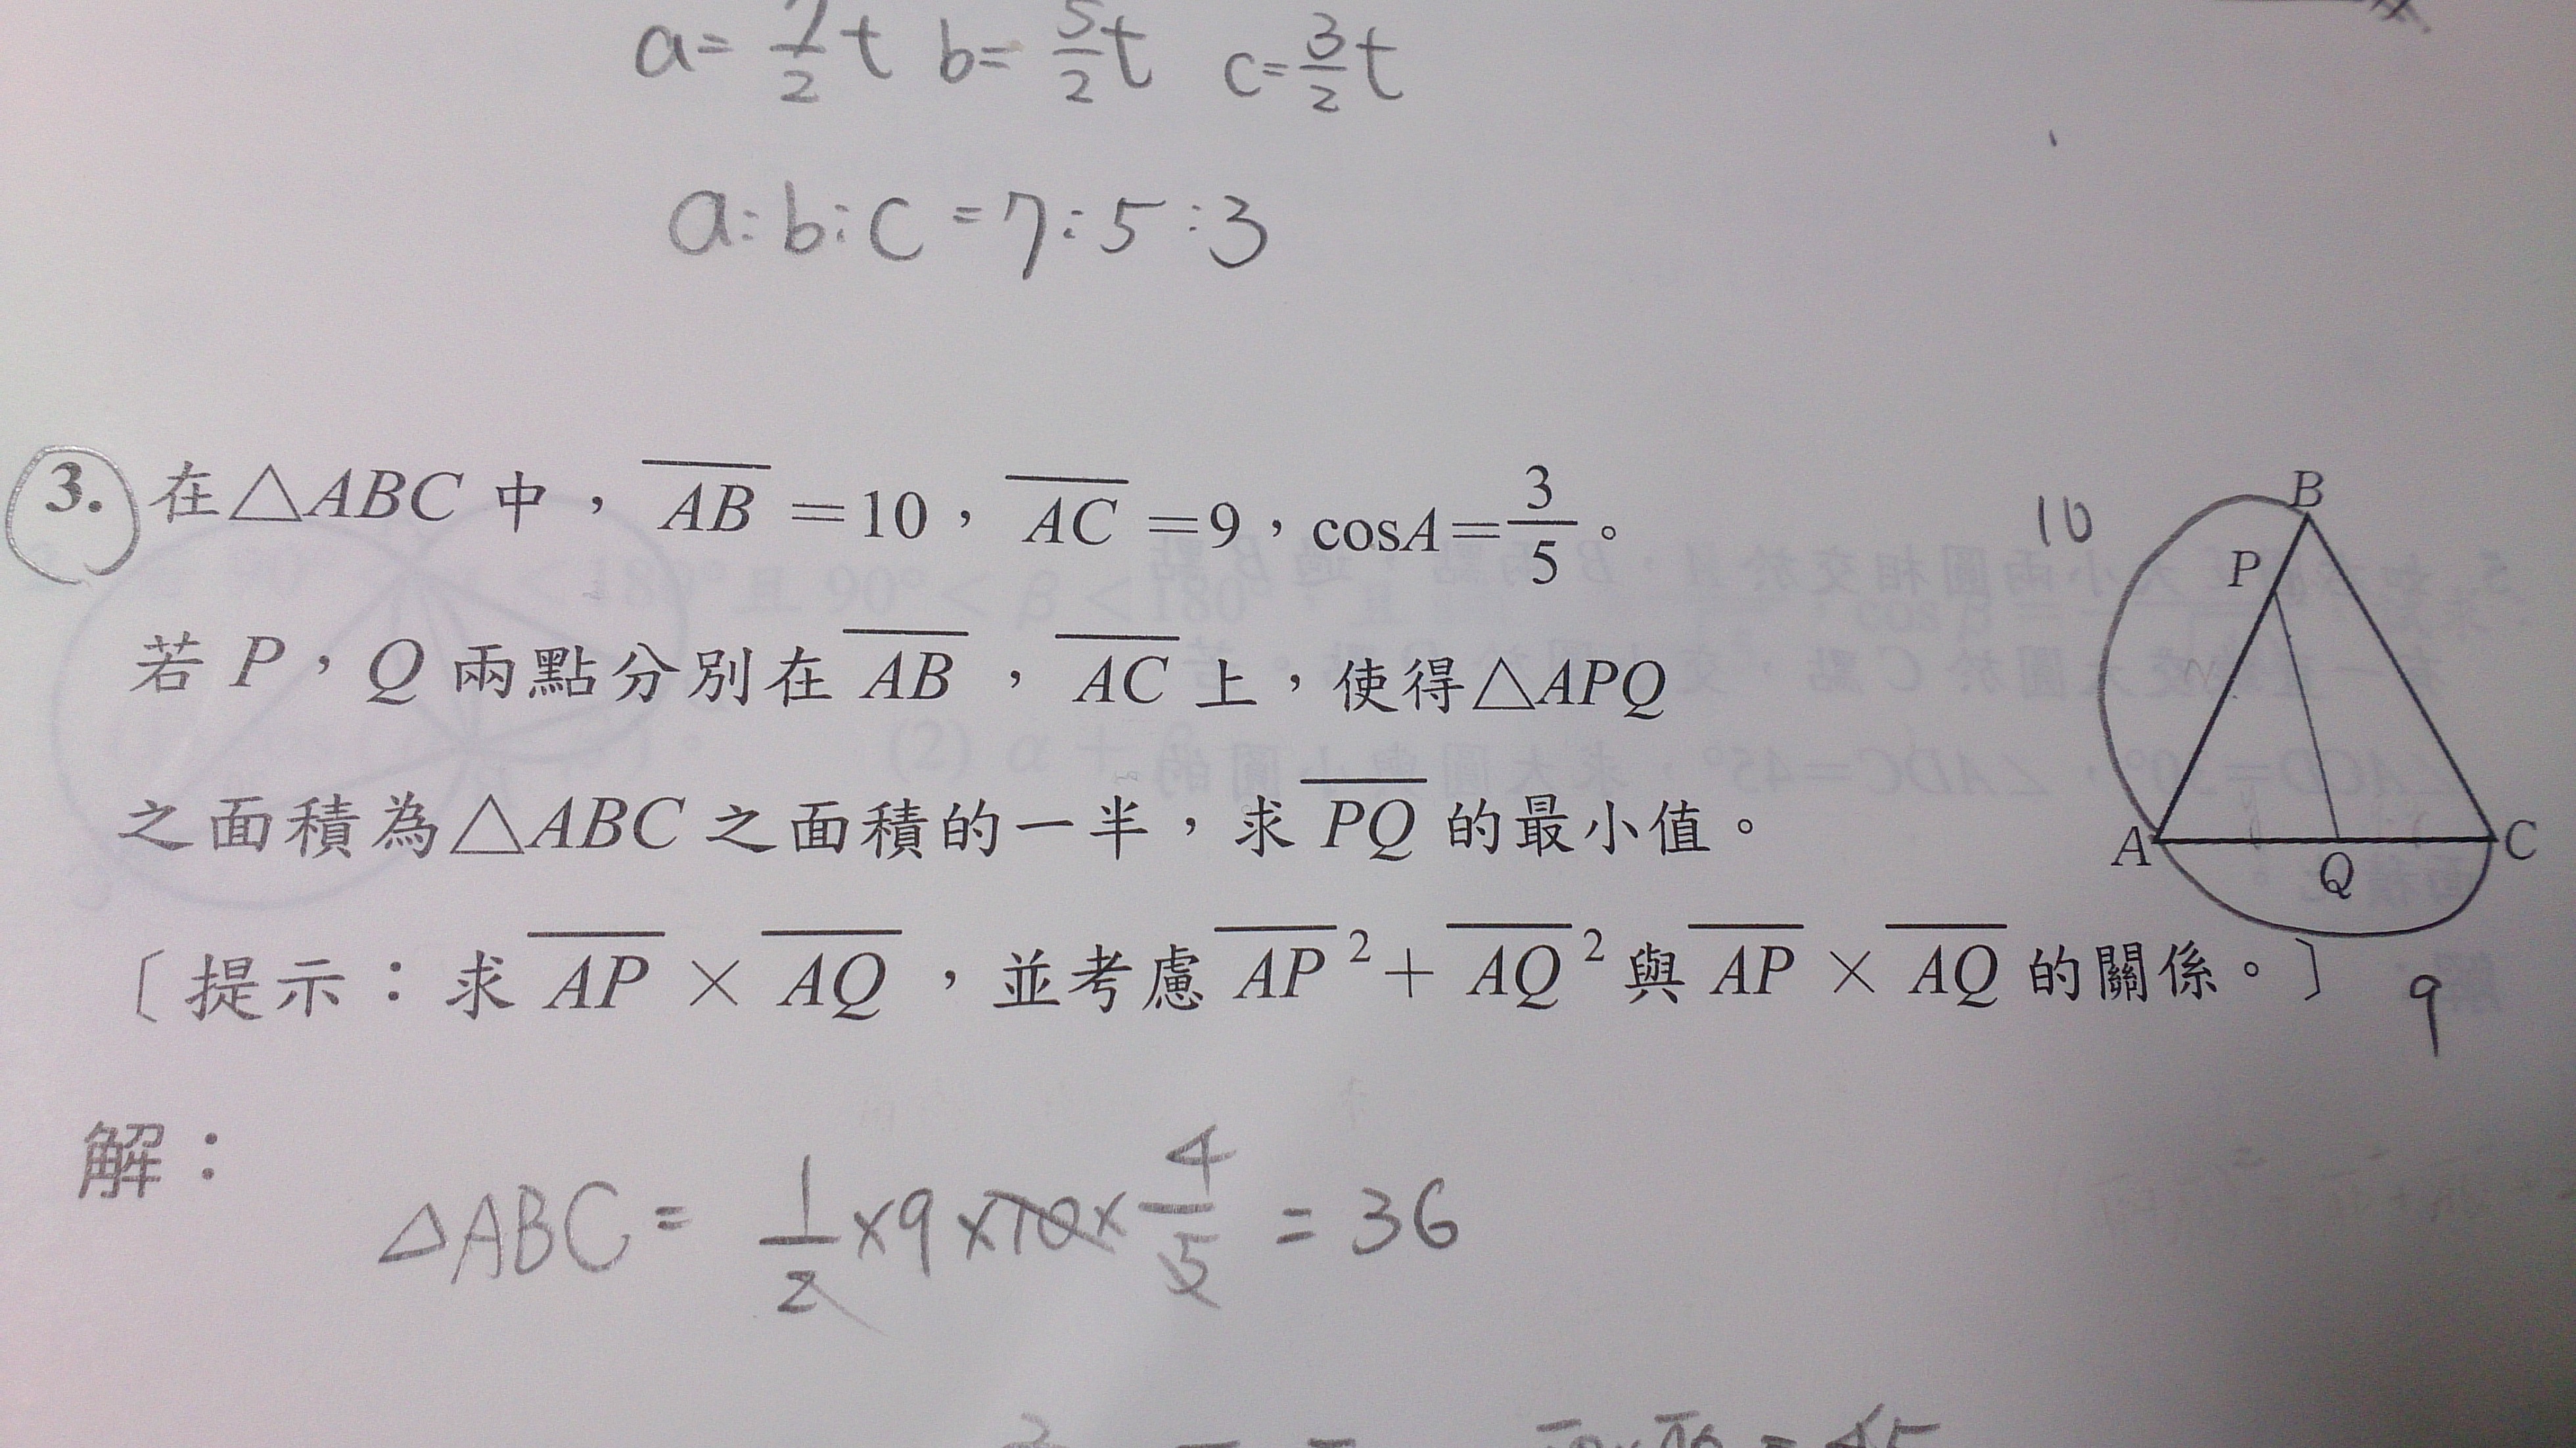 a= 7/2 t b= 5/2 t c= 3/2 t
a:b:c=7:5:3
3. 在△ABC 中，AB =10，AC =9，cosA= 3/5。
若 P，Q 兩點分別在 AB，AC 上，使得△APQ
之面積為△ABC 之面積的一半，求 PQ 的最小值。
〔提示：求 AP × AQ，並考慮 AP ²+ AQ ² 與 AP × AQ 的關係。〕
10
B
P
A
Q
C
9
解：
△ABC = 1/2 ×9×10× 4/5 = 36
= 45